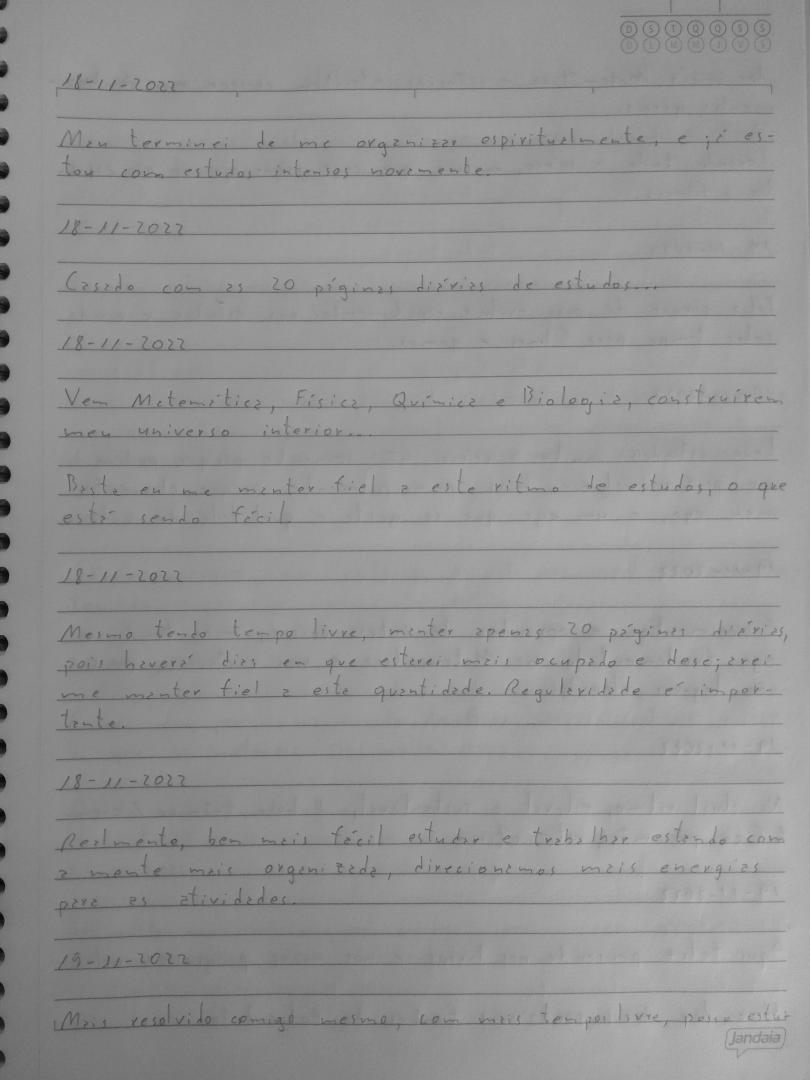 D S T Q Q S S
D L M M J V S
18-11-2022
Mau terminei de me organizar espiritualmente, e já es-
tou com estudos intensos novamente.
18-11-2022
Casado com as 20 páginas diárias de estudos...
18-11-2022
Vem Matemática, Física, Química e Biologia, construírem
meu universo interior...
Basta eu me manter fiel a este ritmo de estudos, o que
está sendo fácil.
18-11-2022
Mesmo tendo tempo livre, manter apenas 20 páginas diárias,
pois haverá dias en que estarei mais ocupado e desejarei
me manter fiel a esta quantidade. Regularidade é impor-
tante.
18-11-2022
Realmente, ben mais fácil estudar e trabalhar estando com
a mente mais organizada, direcionamos mais energias
para as atividades.
19-11-2022
Mais resolvido comigo mesmo, com mais tempo livre, posso estu
Jandaia